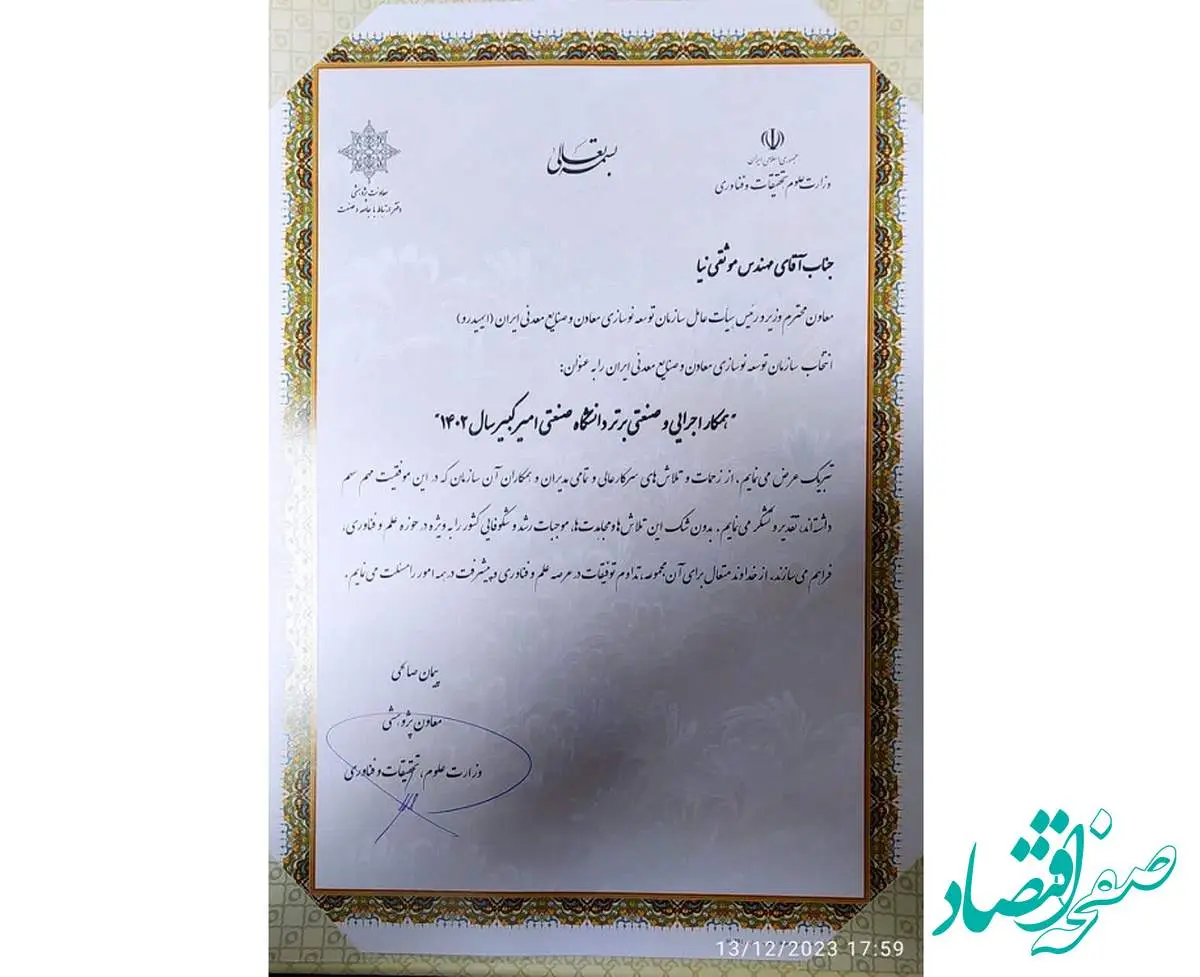 بسمه تعالی
جمهوری اسلامی ایران
وزارت علوم تحقیقات و فناوری
معاونت پژوهشی
دفتر ارتباط با جامعه و صنعت
جناب آقای مهندس موثقی نیا
معاون محترم وزیر و رئیس هیأت عامل سازمان توسعه نوسازی معادن و صنایع معدنی ایران (ایمیدرو)
انتخاب سازمان توسعه نوسازی معادن و صنایع معدنی ایران را به عنوان:
"همکار اجرایی و صنعتی برتر دانشگاه صنعتی امیرکبیر سال ۱۴۰۲"
تبریک عرض می نمایم. از زحمات و تلاش های سرکارعالی و تمامی مدیران و همکاران آن سازمان که در این موفقیت مهم سهم
داشته‌اند، تقدیر و تشکر می نمایم. بدون شک این تلاش ها و مجاهدت ها، موجبات رشد و شکوفایی کشور را به ویژه در حوزه علم و فناوری،
فراهم می سازند. از خداوند متعال برای آن مجموعه، تداوم توفیقات در عرصه علم و فناوری و پیشرفت در همه امور را مسئلت می نمایم.
پیمان صالحی
معاون پژوهشی
وزارت علوم، تحقیقات و فناوری
13/12/2023 17:59
صفحه اقتصاد